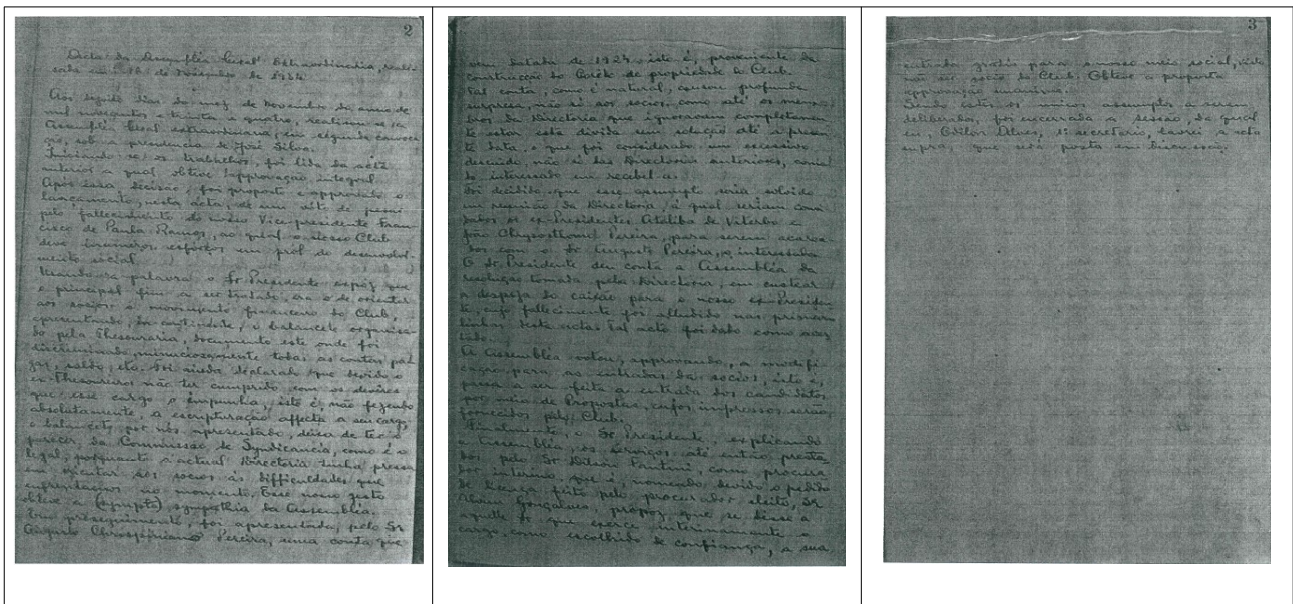 2
Acta da Assembléa Geral Extraordinaria, reali-
sada em 18 de Novembro de 1934
Aos dezoito dias do mez de Novembro do anno de
mil novecentos e trinta e quatro, realisou-se a
Assembléa Geral extraordinaria, em segunda convoca-
ção, sob a presidencia de José Silva.
Iniciando-se os trabalhos, foi lida da acta
anterior a qual obteve approvação integral
Após essa decisão, foi proposto e approvado o
lançamento, nesta acta, de um voto de pezar
pelo fallecimento do nosso Vice-presidente Fran-
cisco de Paula Ramos, ao qual o nosso Club
deve inumeros esforços em prol do desenvol-
vimento social.
Usando da palavra o Sr Presidente expôz que
o principal fim a ser tratado, era o de orientar
aos socios o movimento financeiro do Club,
apresentando, em continuidade, o balancete organisa-
do pela Thesouraria, documento este onde foi
discriminado, minuciosamente todas as contas pa-
gas, saldo, etc. Foi ainda declarado que devido o
ex-Thesoureiro não ter cumprido com os deveres
que esse cargo o empunha, isto é, não fazendo
absolutamente, a escripturação affecta a seu cargo,
o balancete, por nós apresentado, deixa de ter o
parecer, da Commissão de Syndicancia, como é o
legal, porquanto a actual Directoria tinha pressa
em orientar aos socios as difficuldades que
enfrentamos no momento. Esse nosso gesto
obteve a sympathia da Assembléa.
Em proseguimento, foi apresentada, pelo Sr
Augusto Pereira, uma conta que
vem datada de 1927, isto é, proveniente da
construcção do Corêto de propriedade do Club.
Tal conta, como é natural, causou profunda
surpresa, não só aos socios, como até os mem-
bros da Directoria que ignoravam completamen-
te estar esta divida sem solução até a presen-
te data, o que foi considerado um excessivo
descuido, não só das Directorias anteriores, como
do interessado em recebel-a.
Foi decidido que esse assumpto seria solvido
em reunião da Directoria, á qual seriam convi-
dados os ex-Presidentes Ataliba de Viterbo e
João Chrysosthomo Pereira, para serem acarea-
dos com o Sr Augusto Pereira, o interessado
O Sr. Presidente deu conta a Assembléa da
resolução tomada pela Directoria, em custear
a despeza do caixão para o nosso ex-Presiden-
te, cujo fallecimento foi alludido nas primeiras
linhas desta acta. Tal acto foi dado como acer-
tado.
A Assembléa votou, approvando, a modifi-
cação para as entradas de socios, isto é,
passa a ser feita a entrada dos candidatos
por meio de Propostas, cujos impressos serão
fornecidos pelo Club.
Finalmente, o Sr. Presidente, explicando
a Assembléa, os serviços até então presta-
dos pelo Sr Dilson Fantini, como procura-
dor interino que é, nomeado devido o pedido
de licença feito pelo procurador eleito, Sr
Gonçalves, propoz que se désse a
aquelle Sr que exerce interinamente o
cargo, como escolhido de confiança, a sua
3
entrada gratis para o nosso meio social, visto
não ser socio do Club. Obteve a proposta
approvação unanime.
Sendo estes os unicos assumptos a serem
deliberados, foi encerrada a sessão, da qual
eu, Odilon Alves, 1º secretario, lavrei a acta
supra, que será posta em discussão.